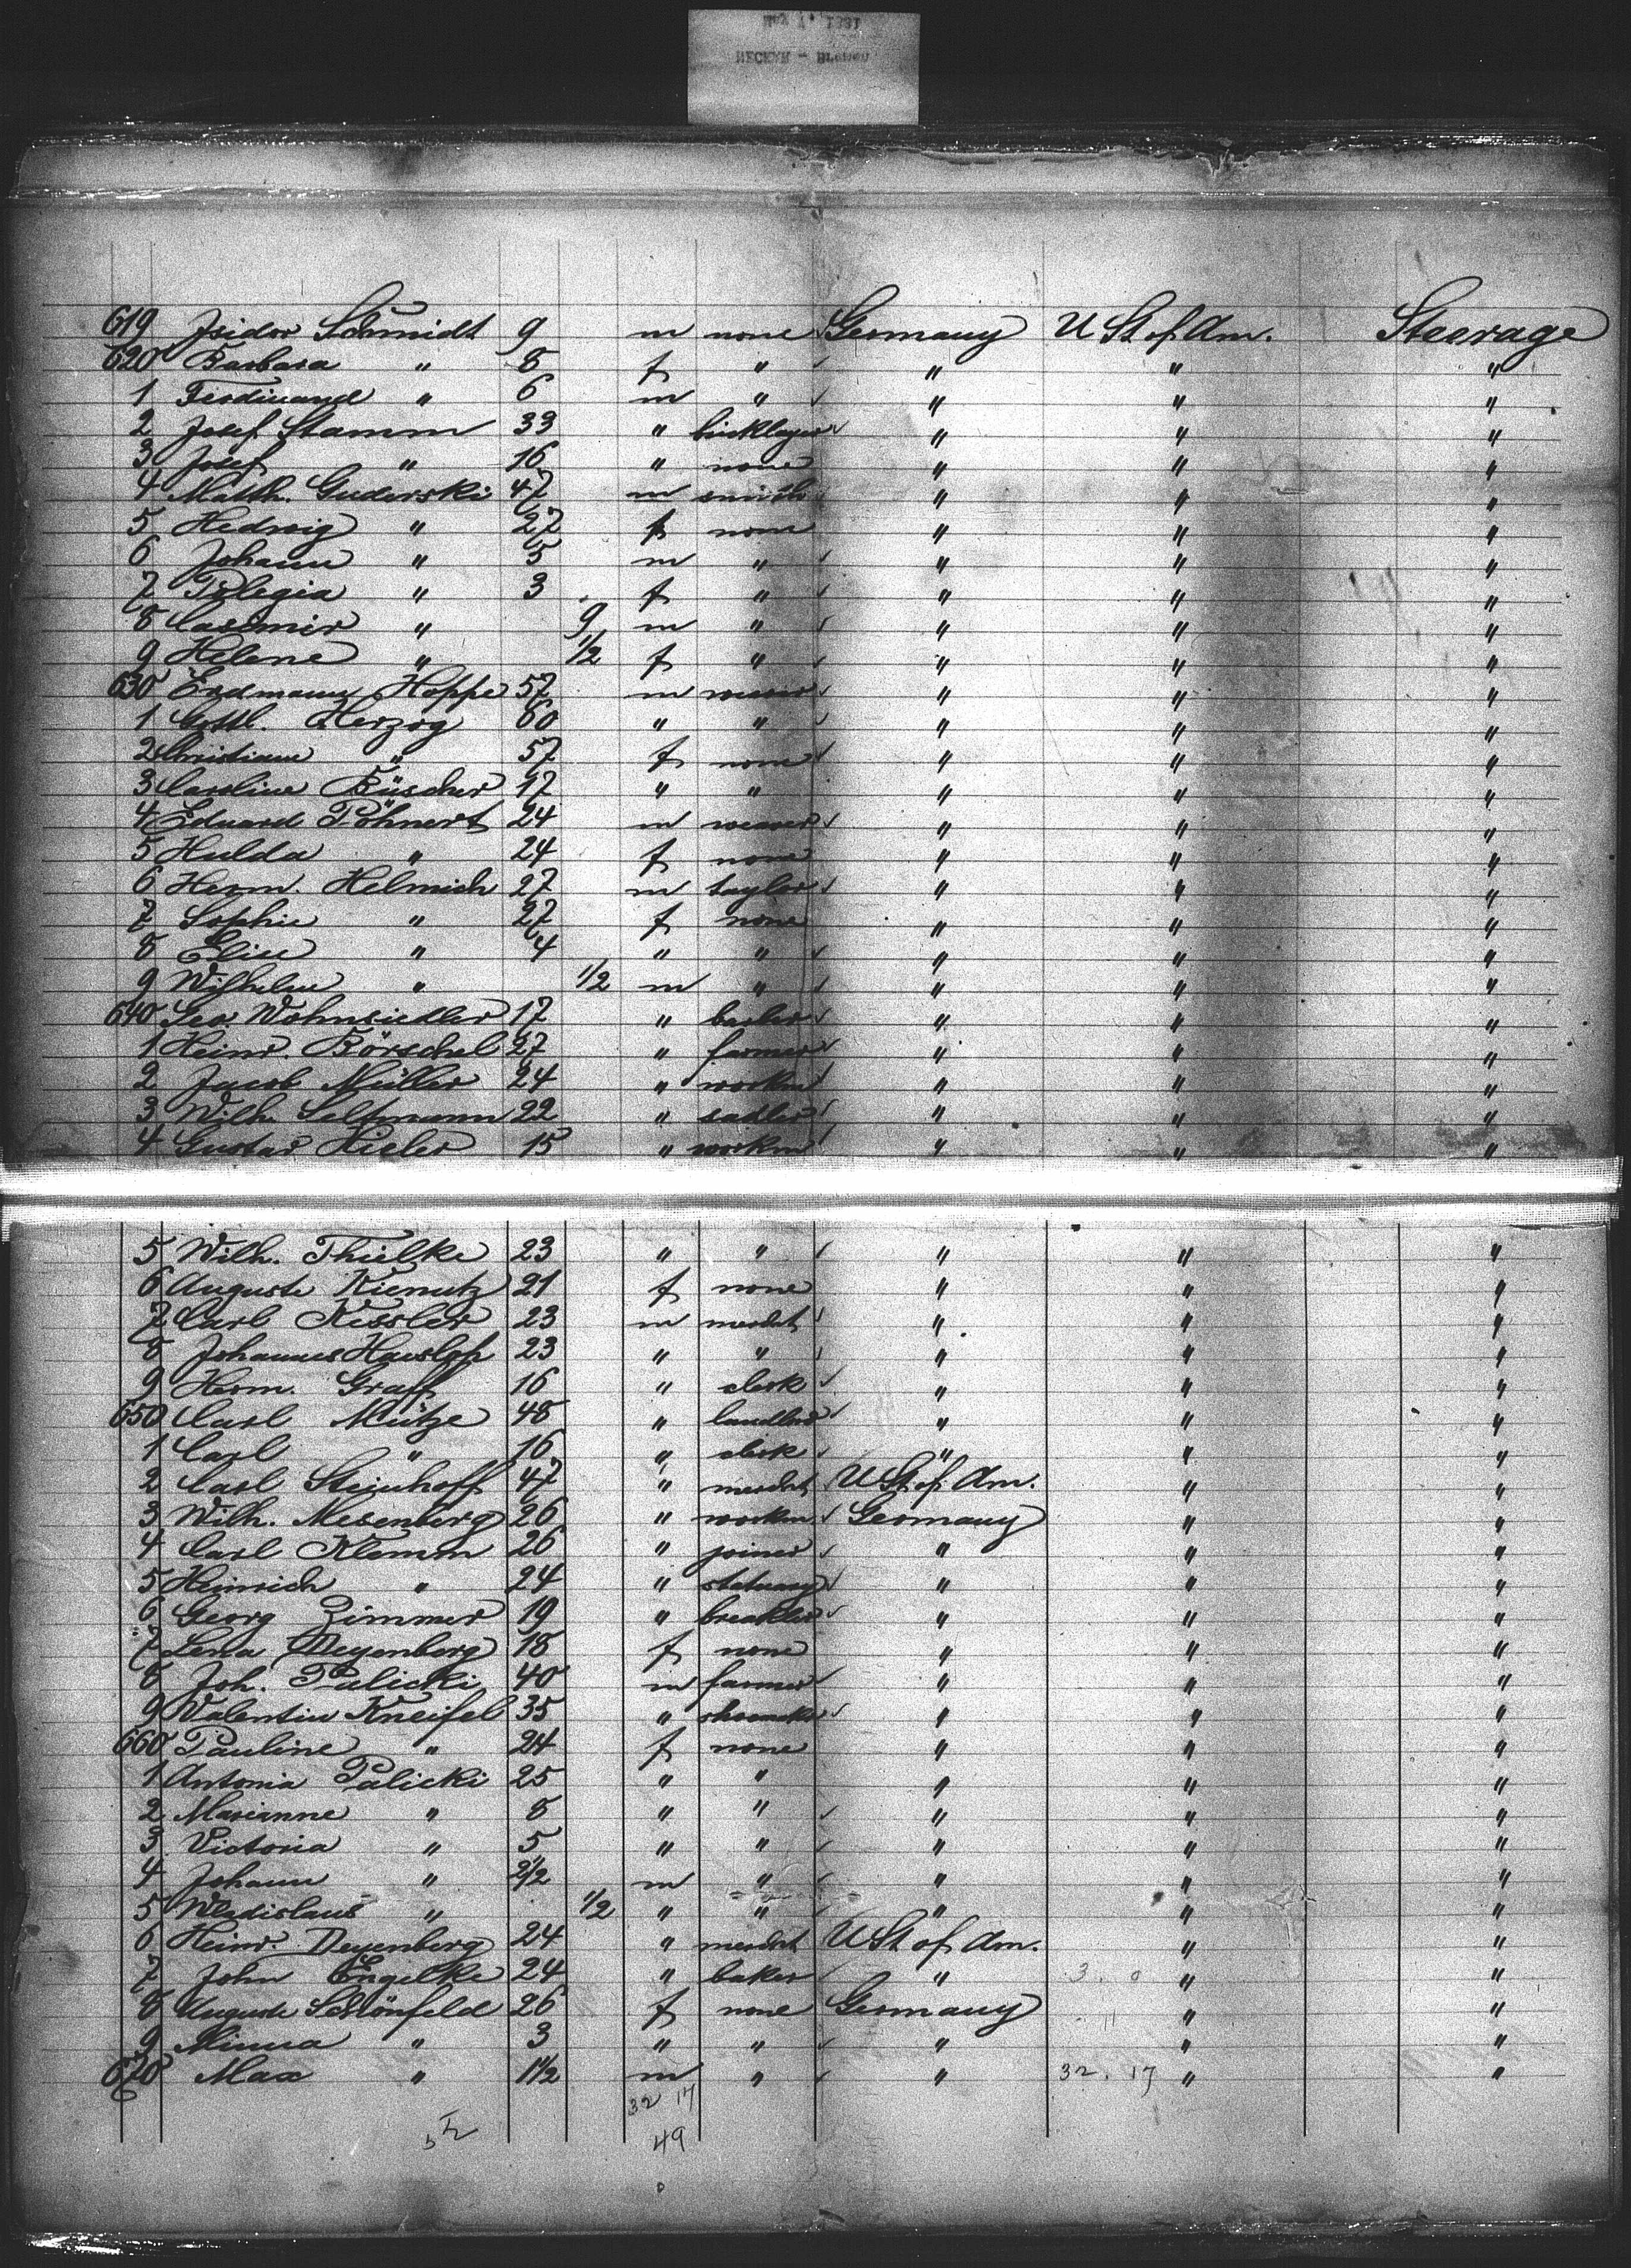 May 1, 1881
NECKAR - Bremen
619 Isidor Schmidt 9 m none Germany U St of Am. Steerage
620 Barbara " 8 f " " " "
1 Ferdinand " 6 m " " " "
2 Josef Stamm 33 " bricklayer " " "
3 Josef " 16 " none " " "
4 Matth. Guderski 47 m smith " " "
5 Hedwig " 27 f none " " "
6 Johann " 5 m " " " "
7 Pelegia " 3 f " " " "
8 Casimir " 9 m " " " "
9 Helene " 1/2 f " " " "
630 Erdmann Hoppe 57 m weaver " " "
1 Gottl. Herzog 60 " " " " "
2 Christiane " 57 f none " " "
3 Caroline Büscher 17 " " " " "
4 Eduard Pöhnert 24 m weaver " " "
5 Hulda " 24 f none " " "
6 Herm. Helmich 27 m taylor " " "
7 Sophie " 27 f none " " "
8 Elise " 4 " " " " "
9 Wilhelm " 1/2 m " " " "
640 Geo. Wohnsiedler 17 " barber " " "
1 Heinr. Börschel 27 " farmer " " "
2 Jacob Müller 24 " workm " " "
3 Wilh. Seltmann 22 " sadler " " "
4 Gustav Hieler 15 " workm " " "
5 Wilh. Thielke 23 " " " " "
6 Auguste Kienutz 21 f none " " "
7 Carl Kessler 23 m mercht " " "
8 Johannes Hauslop 23 " " " " "
9 Herm. Graff 16 " clerk " " "
650 Carl Mütze 48 " landlord " " "
1 Carl " 16 " clerk " " "
2 Carl Steinhoff 47 " mercht U St of Am. " "
3 Wilh. Mesenberg 26 " workm Germany " "
4 Carl Klemm 26 " joiner " " "
5 Heinrich " 24 " statuary " " "
6 Georg Zimmer 19 " " " "
7 Lena Deyenberg 18 f none " " "
8 Joh. Palicki 40 m farmer " " "
9 Valentin Kneifel 35 " shoemaker " " "
660 Pauline " 24 f none " " "
1 Antonia Palicki 25 " " " " "
2 Marianne " 8 " " " " "
3 Victoria " 5 " " " " "
4 Johann " 2 1/2 m " " " "
5 Wladislaus " 1/2 " " " " "
6 Heinr. Deyenberg 24 " mercht U St of Am. " "
7 John Engelke 24 " baker " " "
8 Auguste Schönfeld 26 f none Germany " "
9 Minna " 3 " " " " "
670 Max " 1 1/2 m " " 32. 17 " "
32 17
49